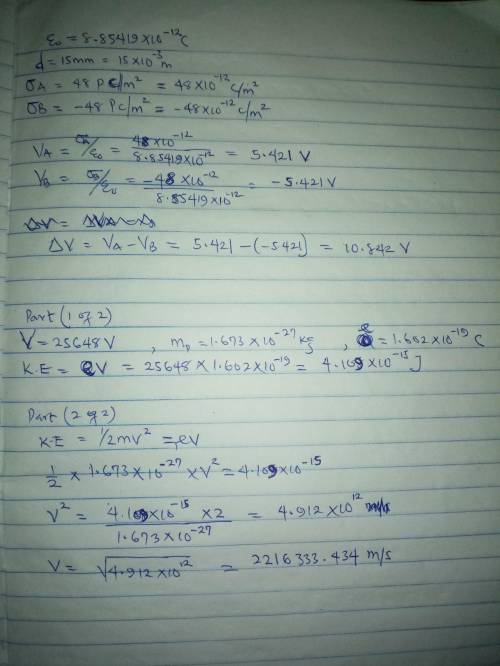 ε₀ = 8.85419×10⁻¹²C
d = 15mm = 15×10⁻³m
σA = 48 PC/m² = 48×10⁻¹² C/m²
σB = -48 PC/m² = -48×10⁻¹² C/m²
VA = σA/ε₀ = 48×10⁻¹²/8.85419×10⁻¹² = 5.421 V
VB = σB/ε₀ = -48×10⁻¹²/8.85419×10⁻¹² = -5.421V
ΔV = VA - VB = 5.421 - (-5.421) = 10.842 V
Part (1 of 2)
V = 25648V , mp = 1.673×10⁻²⁷kg , e = 1.602×10⁻¹⁹C
K.E = eV = 25648×1.602×10⁻¹⁹ = 4.109×10⁻¹⁵J
Part (2 of 2)
K.E = 1/2mv² = eV
1/2 × 1.673×10⁻²⁷ × V² = 4.109×10⁻¹⁵
V² = 4.109×10⁻¹⁵×2/1.673×10⁻²⁷ = 4.912×10¹²
V = √4.912×10¹² = 2216333.434 m/s